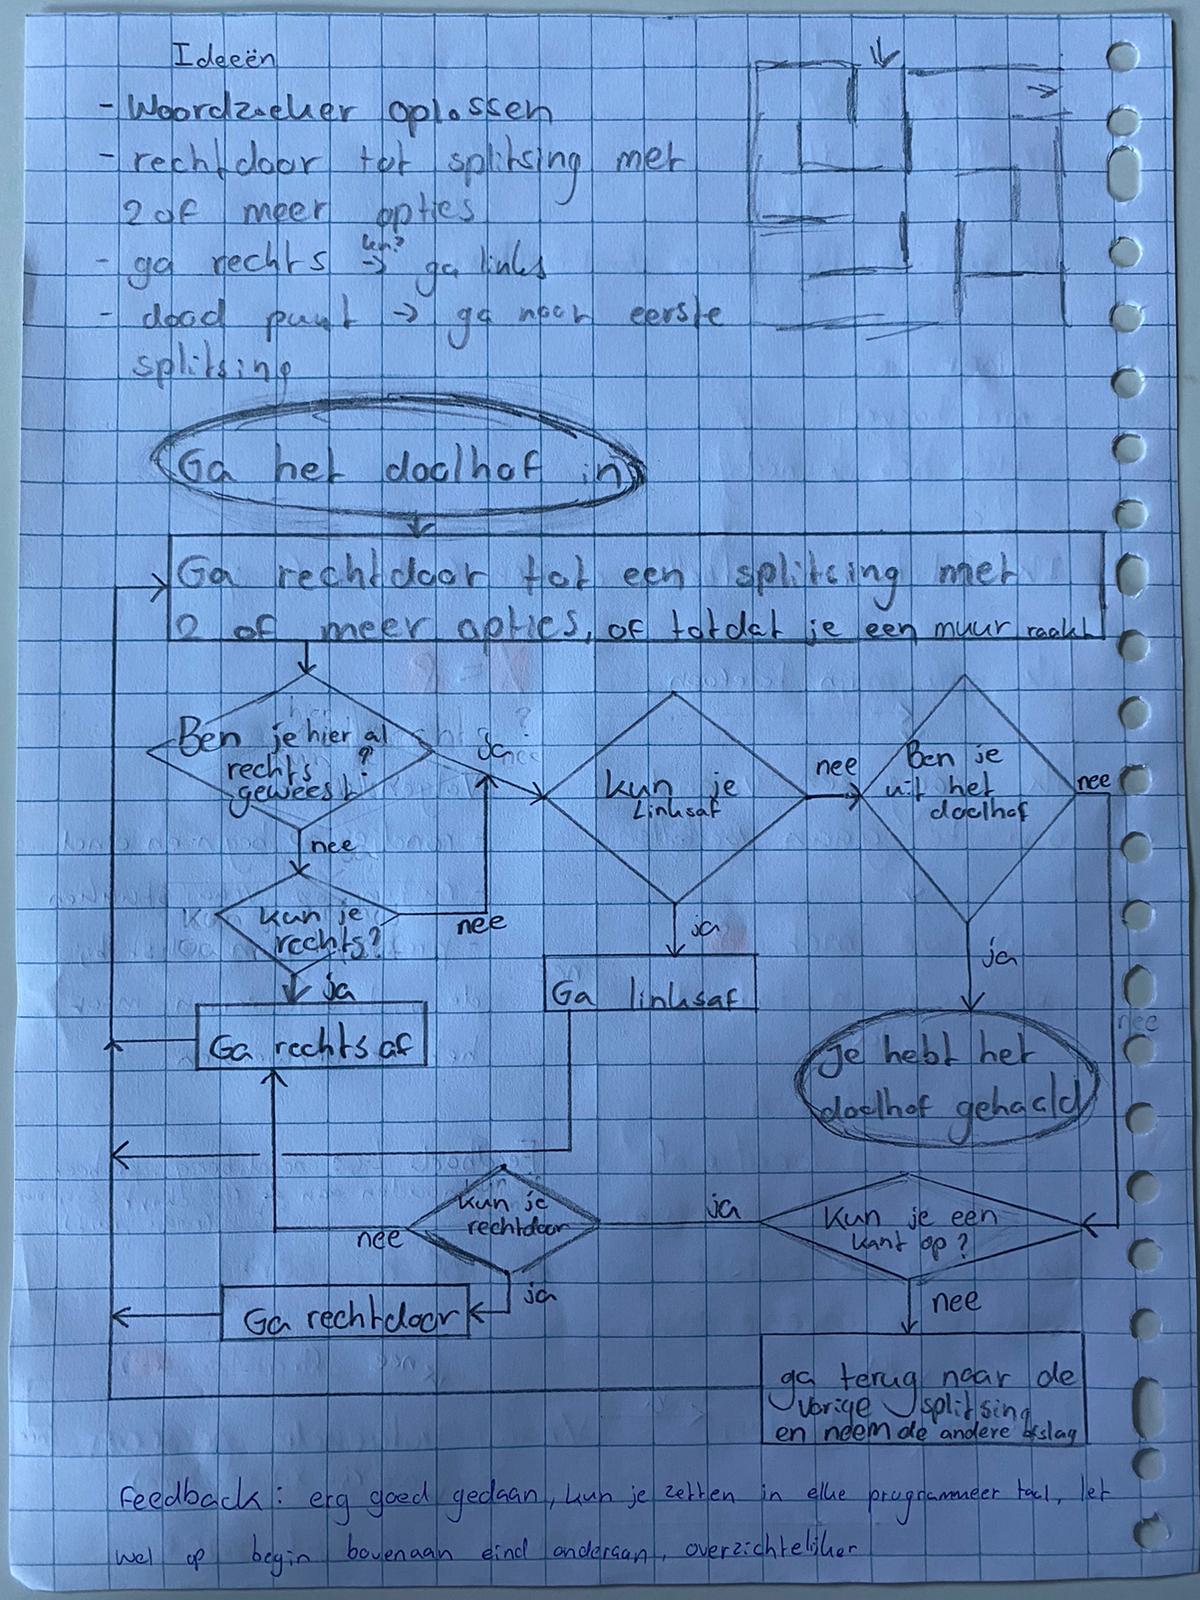 Ideeën
- Woordzoeker oplossen
- rechtdoor tot splitsing met
2 of meer opties
- ga rechts → ga links
- dood punt → ga naar eerste
splitsing
Ga het doolhof in
Ga rechtdoor tot een splitsing met
2 of meer opties, of totdat je een muur raakt
Ben je hier al
rechts
geweest?
Ja
nee
kun je
rechts?
nee
ja
Ga rechtsaf
kun je
Linksaf
nee
ja
Ga linksaf
Ben je
uit het
doolhof
nee
ja
Je hebt het
doolhof gehaald
Kun je een
kant op?
ja
nee
kun je
rechtdoor
nee
ja
Ga rechtdoor
ga terug naar de
vorige splitsing
en neem de andere afslag
Feedback: erg goed gedaan, kun je zetten in elke programmeer taal, let
wel op begin bovenaan eind onderaan, overzichtelijker